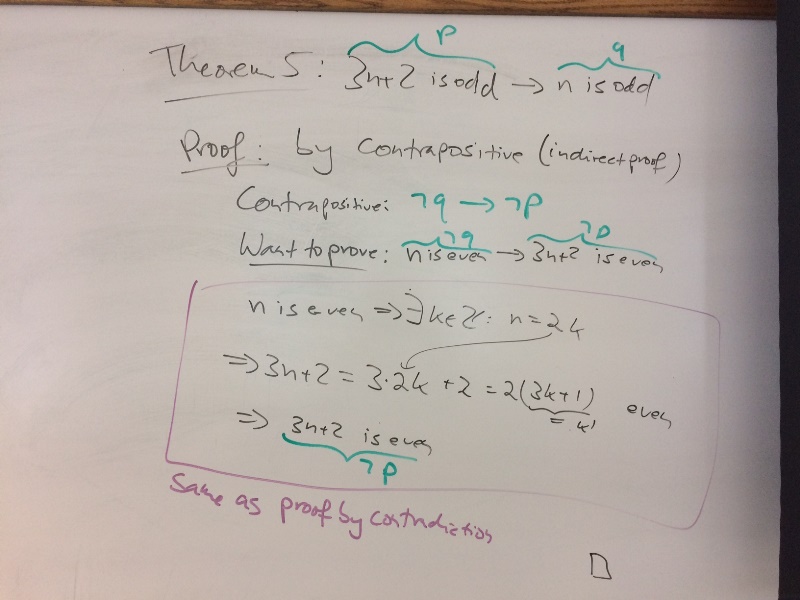 p q
Theorem 5: 3n+2 is odd → n is odd
Proof: by Contrapositive (indirect proof)
Contrapositive: ¬q → ¬p
¬q ¬p
Want to prove: n is even → 3n+2 is even
n is even ⇒ ∃k∈ℤ: n=2k
⇒ 3n+2 = 3·2k +2 = 2(3k+1) even
= k'
⇒ 3n+2 is even
¬p
Same as proof by contradiction